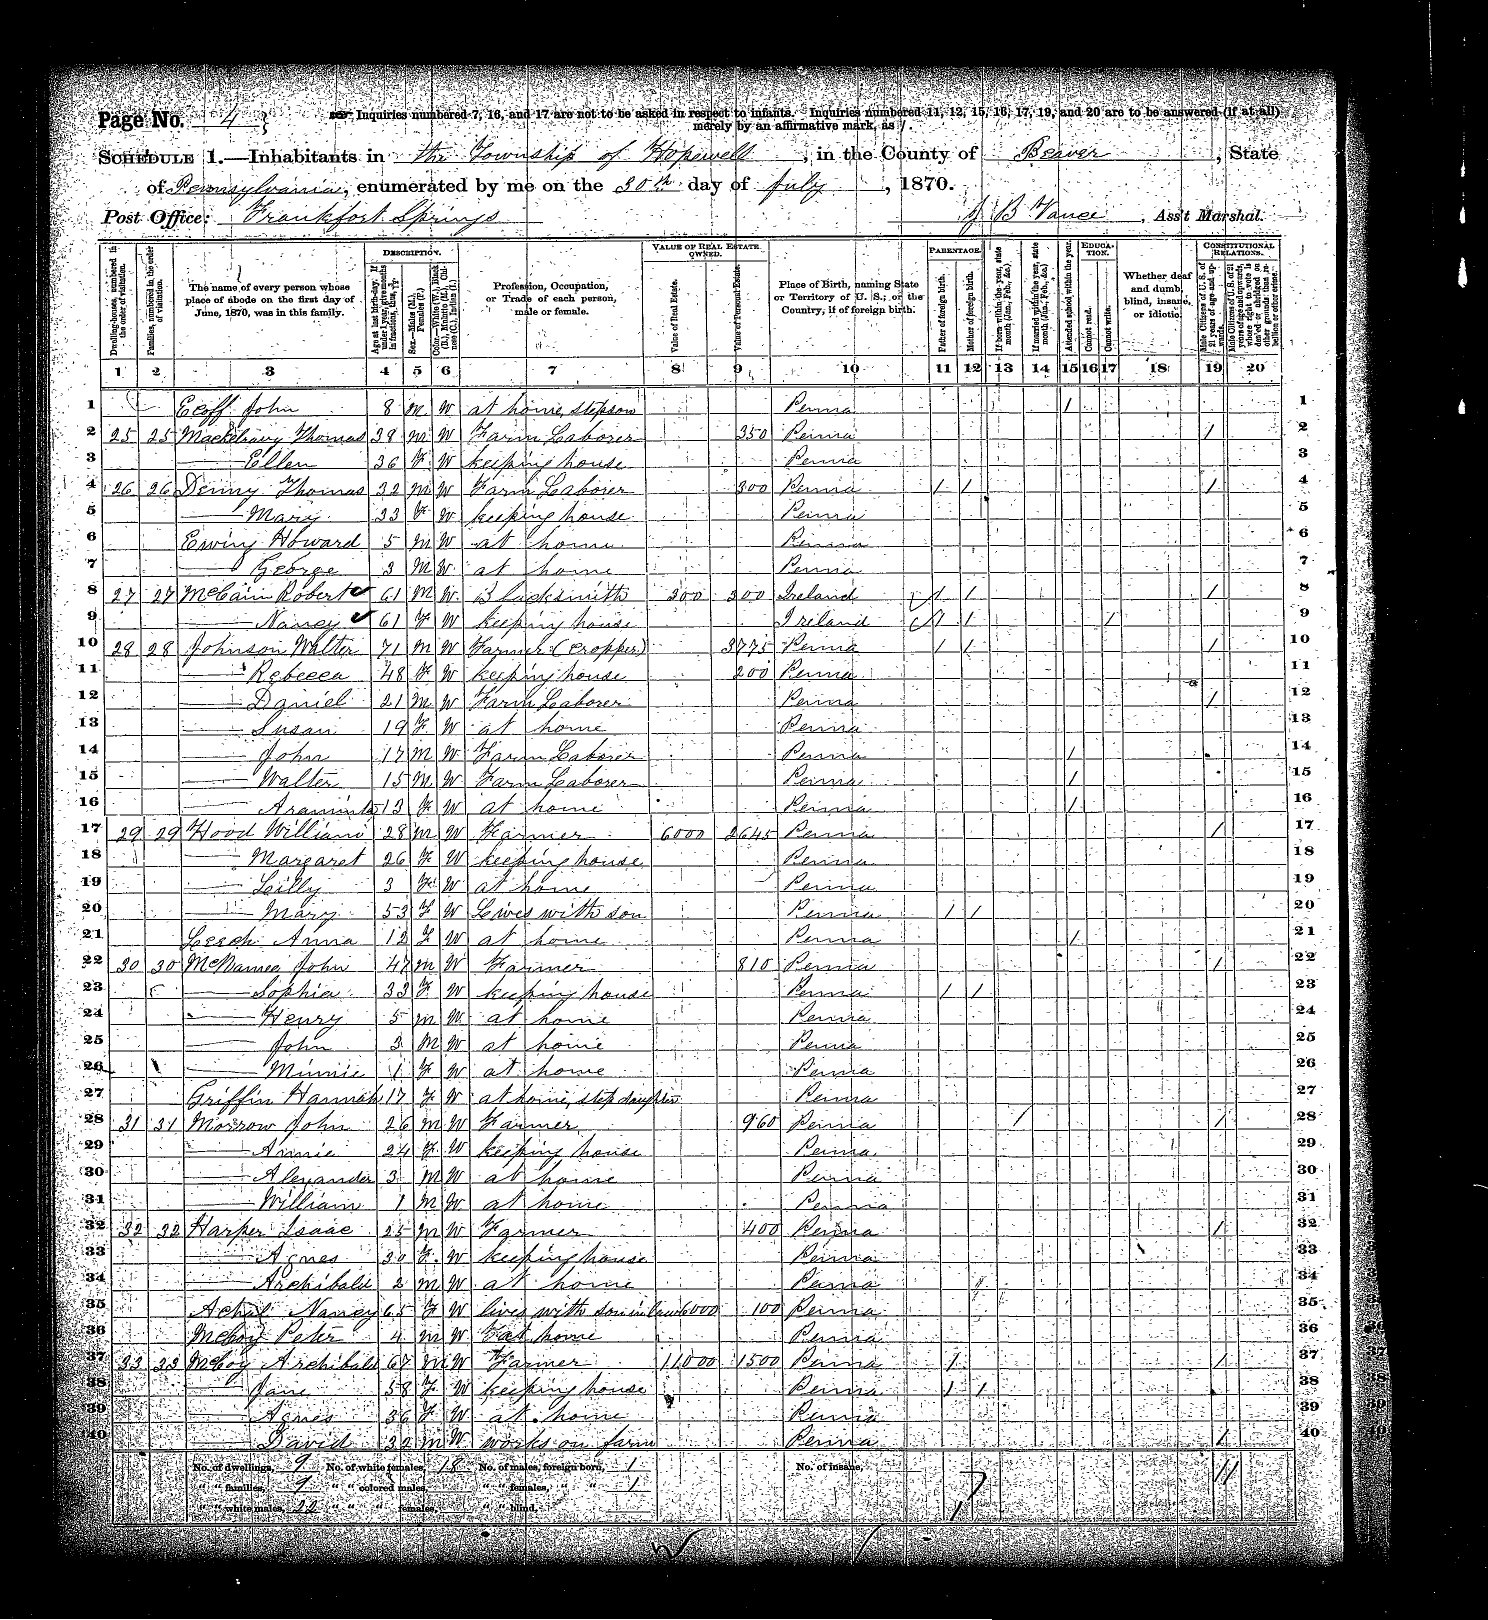 Page No. 4
Inquiries numbered 7, 16, and 17 are not to be asked in respect to infants. Inquiries numbered 11, 12, 15, 16, 17, 19, and 20 are to be answered (if at all)
merely by an affirmative mark, as /.
SCHEDULE 1.—Inhabitants in the Township of Hopewell, in the County of Beaver, State
of Pennsylvania, enumerated by me on the 30th day of July, 1870.
Post Office: Frankfort Springs J B Vance, Ass't Marshal.
DESCRIPTION. VALUE OF REAL ESTATE OWNED. PARENTAGE. EDUCATION. CONSTITUTIONAL RELATIONS.
Dwelling-houses, numbered in the order of visitation. Families, numbered in the order of visitation. The name of every person whose place of abode on the first day of June, 1870, was in this family. Age at last birth-day. If under 1 year, give months in fractions, thus, Sex.—Males (M.), Females (F.) Color.—White (W.), Black (B.), Mulatto (M.), Chinese (C.), Indian (I.) Profession, Occupation, or Trade of each person, male or female. Value of Real Estate. Value of Personal Estate. Place of Birth, naming State or Territory of U. S.; or the Country, if of foreign birth. Father of foreign birth. Mother of foreign birth. If born within the year, state month (Jan., Feb., &c.) If married within the year, state month (Jan., Feb., &c.) Attended school within the year. Cannot read. Cannot write. Whether deaf and dumb, blind, insane, or idiotic. Male Citizens of U. S. of 21 years of age and upwards. Male Citizens of U. S. of 21 years of age and upwards, whose right to vote is denied or abridged on other grounds than rebellion or other crime.
1 2 3 4 5 6 7 8 9 10 11 12 13 14 15 16 17 18 19 20
1 Ecoff John 8 M W at home, stepson Penna / 1
2 25 25 Thomas 38 M W Farm Laborer 350 Penna / 2
3 — Ellen 36 F W keeping house Penna 3
4 26 26 Denny Thomas 32 M W Farm Laborer 300 Penna / / / 4
5 — Mary 33 F W keeping house Penna 5
6 Ewing Howard 5 M W at home Penna 6
7 — George 3 M W at home Penna 7
8 27 27 McCain Robert 61 M W Blacksmith 300 200 Ireland / / / 8
9 — Nancy 61 F W keeping house Ireland / / / 9
10 28 28 Johnson Walter 71 M W Farmer (Cropper) 3775 Penna / / / 10
11 — Rebecca 48 F W keeping house 200 Penna 11
12 — Daniel 21 M W Farm Laborer Penna / 12
13 — Susan 19 F W at home Penna 13
14 — John 17 M W Farm Laborer Penna / 14
15 — Walter 15 M W Farm Laborer Penna / 15
16 — Araminta 13 F W at home Penna / 16
17 29 29 Hood William 28 M W Farmer 6000 2645 Penna / 17
18 — Margaret 26 F W keeping house Penna 18
19 — Lilly 3 F W at home Penna 19
20 — Mary 53 F W Lives with son Penna / / 20
21 Leech Anna 12 F W at home Penna / 21
22 30 30 McNamee John 47 M W Farmer 810 Penna / 22
23 — Sophia 33 F W keeping house Penna / / 23
24 — Henry 5 M W at home Penna 24
25 — John 3 M W at home Penna 25
26 — Minnie 1 F W at home Penna 26
27 Griffin Hannah 17 F W at home, step daughter Penna 27
28 31 31 Morrow John 26 M W Farmer 960 Penna / / 28
29 — Annie 24 F W keeping house Penna 29
30 — Alexander 3 M W at home Penna 30
31 — William 1 M W at home Penna 31
32 32 32 Harper Isaac 25 M W Farmer 400 Penna / 32
33 — Agnes 30 F W keeping house Penna 33
34 — Archibald 2 M W at home Penna 34
35 Nancy 65 F W lives with son in law 6000 100 Penna 35
36 McCoy Peter 4 M W at home Penna 36
37 33 33 McCoy Archibald 67 M W Farmer 11000 1500 Penna / / 37
38 — Jane 58 F W keeping house Penna / / 38
39 — Agnes 36 F W at home Penna 39
40 — David 32 M W works on farm Penna / 40
No. of dwellings, 9 No. of white females, 18 No. of males, foreign born, 1 No. of insane, 11
" " families, 9 " " colored males, " " females, " " 1 7
" " white males, 22 " " " females, " " blind,